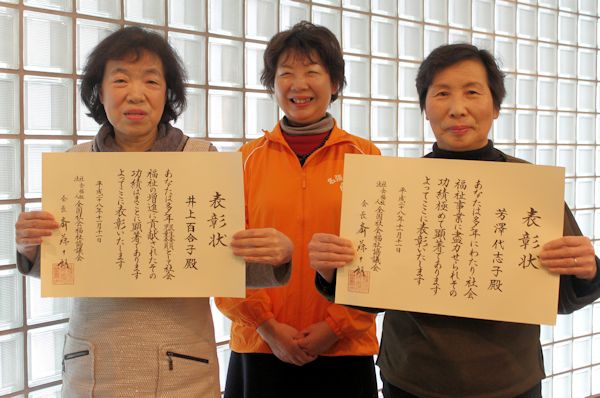 表彰状
井上百合子殿
福祉の増進に貢献されたその
功績はまことに顕著であります
よってここに表彰いたします
平成二十八年十一月十一日
社会福祉法人 全国社会福祉協議会
会長
表彰状
芳澤代志子殿
あなたは多年にわたり社会
福祉事業に盡力せられその
功績極めて顕著であります
よってここに表彰いたします
平成二十八年十一月十一日
社会福祉法人 全国社会福祉協議会
会長